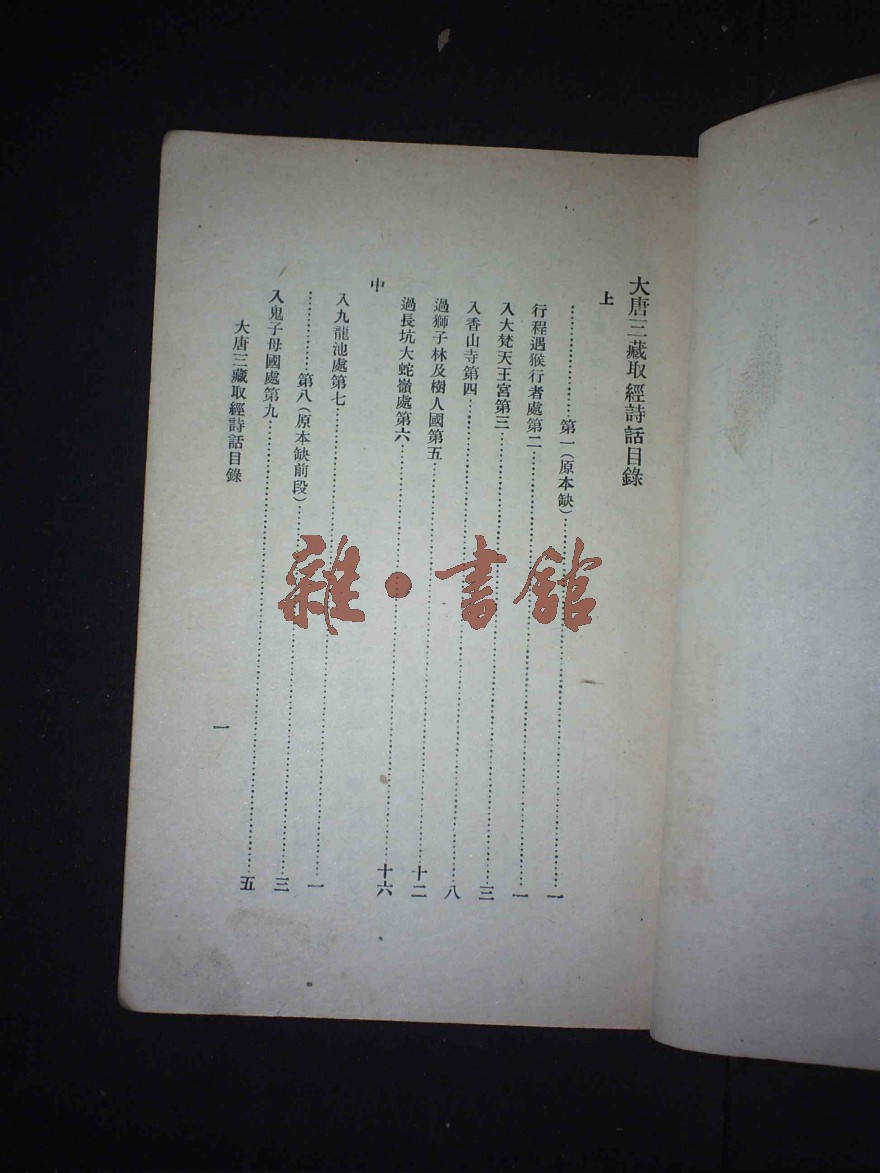 大唐三藏取經詩話目錄
上
…………第一（原本缺）…………一
行程遇猴行者處第二…………一
入大梵天王宮第三…………三
入香山寺第四…………八
過獅子林及樹人國第五…………十二
過長坑大蛇嶺處第六…………十六
中
入九龍池處第七…………一
…………第八（原本缺前段）…………三
入鬼子母國處第九…………五
大唐三藏取經詩話目錄
一
雜·書館